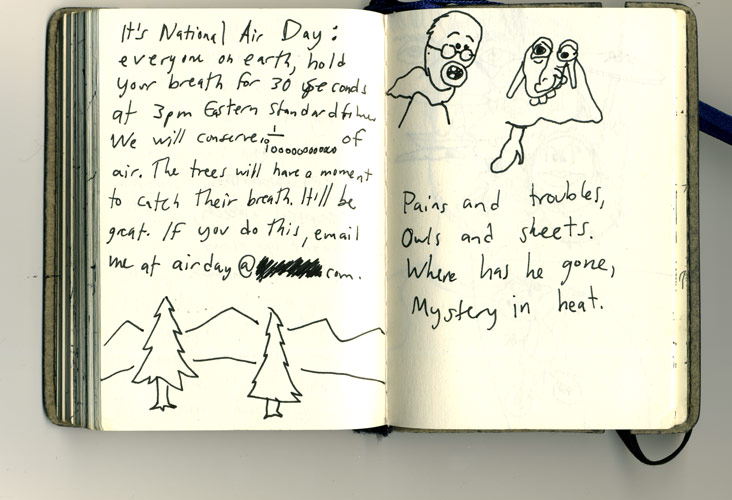 It's National Air Day:
everyone on earth, hold
your breath for 30 seconds
at 3pm Eastern Standard time.
We will conserve 1/100000000000 of
air. The trees will have a moment
to catch their breath. It'll be
great. If you do this, email
me at airday@ com.
Pains and troubles,
Owls and sheets.
Where has he gone,
Mystery in heat.